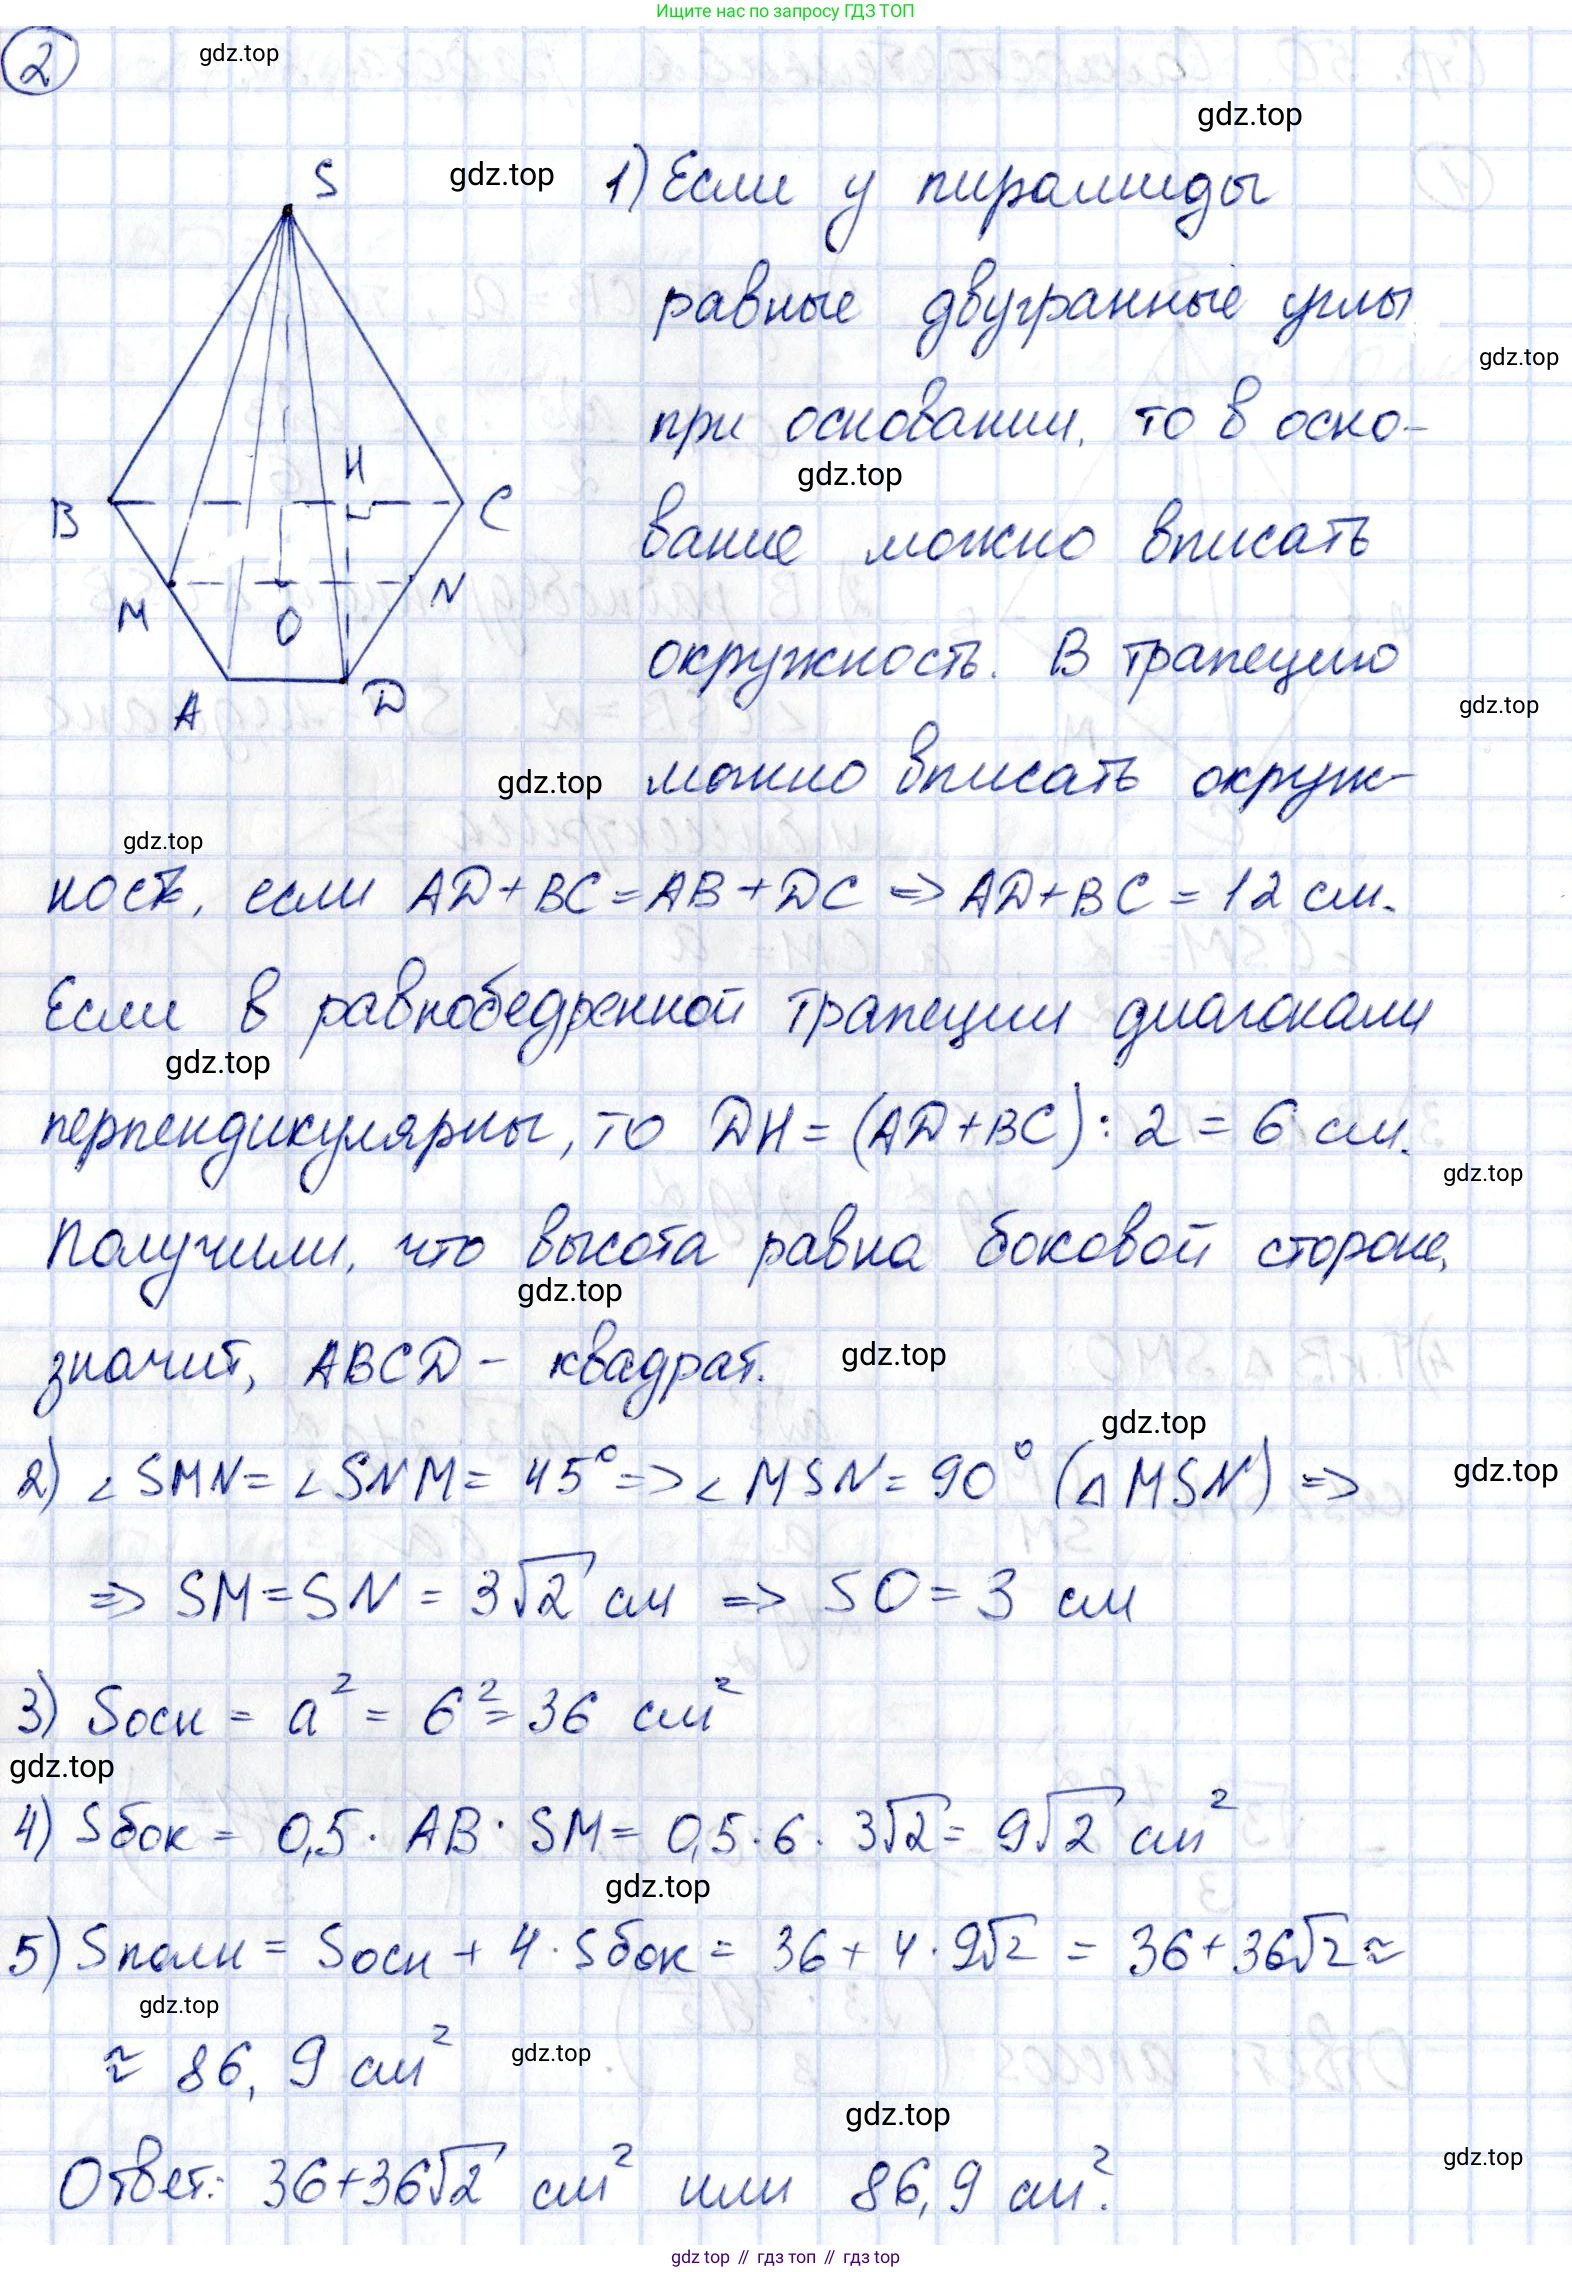 Ищите нас по запросу ГДЗ ТОП
2
gdz.top
gdz.top
S
gdz.top
1) Если у пирамиды
равные двугранные углы
gdz.top
при основании, то в осно-
gdz.top
H
B
C
вание можно вписать
M
O
N
окружность. В трапецию
A
D
gdz.top
gdz.top
можно вписать окруж-
gdz.top
ность, если AD+BC=AB+DC => AD+BC=12 см.
Если в равнобедренной трапеции диагонали
gdz.top
перпендикулярны, то DH=(AD+BC):2=6 см.
gdz.top
Получили, что высота равна боковой стороне,
gdz.top
значит, ABCD - квадрат.
gdz.top
gdz.top
2) ∠SMN=∠SNM=45°=>∠MSN=90° (△MSN) =>
gdz.top
=> SM=SN=3√2 см => SO=3 см
3) Sосн = a² = 6²=36 см²
gdz.top
4) Sбок = 0,5·AB·SM=0,5·6·3√2=9√2 см²
gdz.top
5) Sполн = Sосн + 4·Sбок = 36+4·9√2 = 36+36√2≈
gdz.top
≈ 86,9 см²
gdz.top
gdz.top
Ответ: 36+36√2 см² или 86,9 см².
gdz.top
gdz top // гдз топ // гдз top